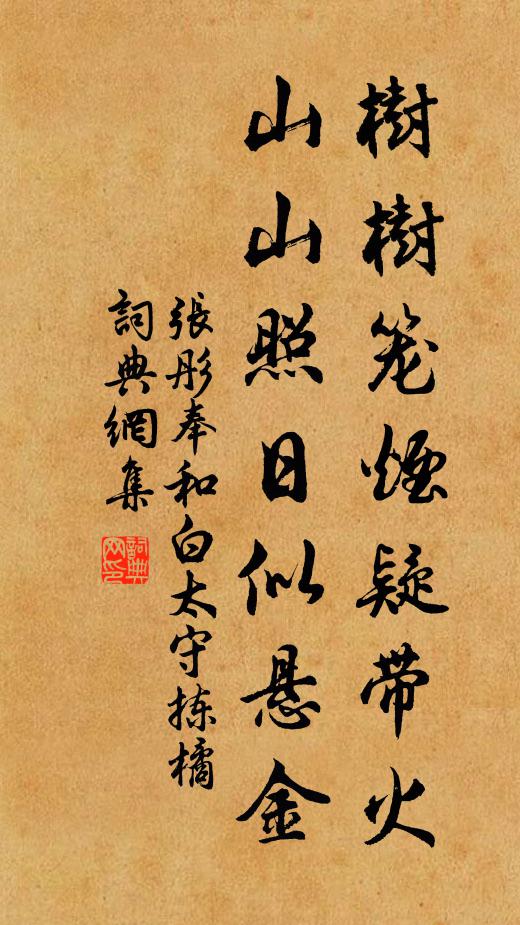 樹樹笼煙疑带火
山山照日似悬金
張彤奉和白太守拣橘
詞典網集
詞典网印